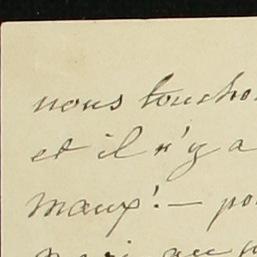 nous toucho
et il n'y a
maux! — po